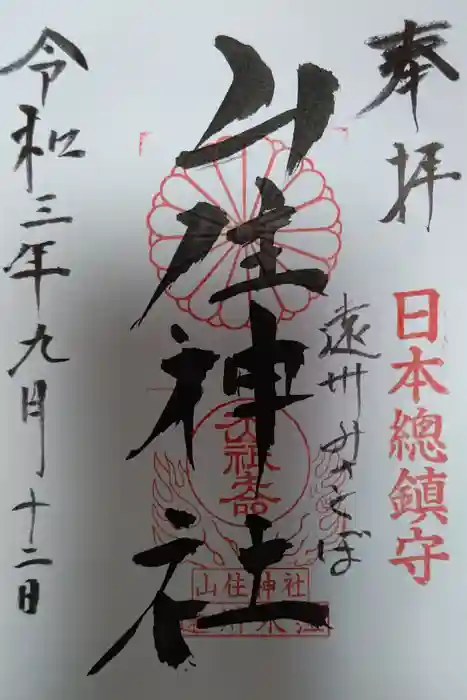 奉拝
日本總鎮守
遠州みさくぼ
山住神社
山住神社
令和三年九月十二日